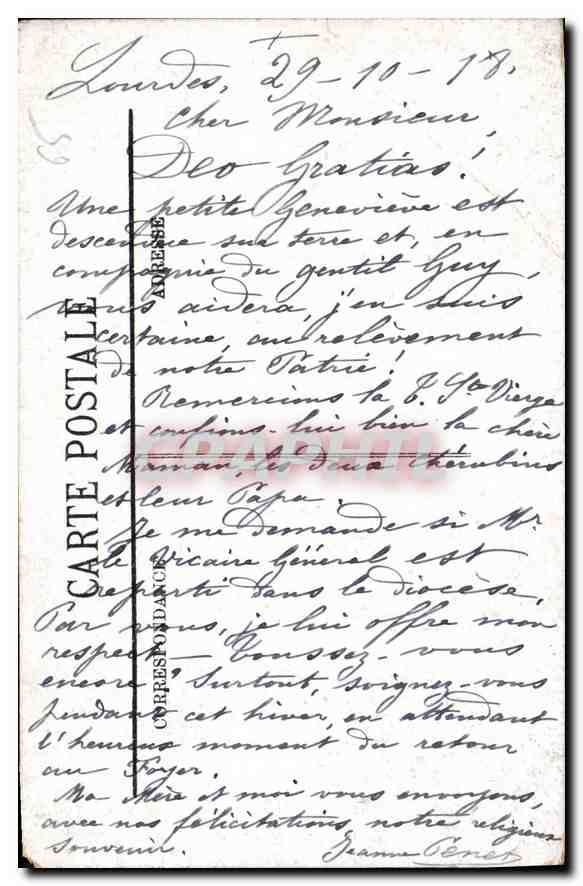 Lourdes, 29-10-18.
Cher Monsieur,
Deo Gratias!
Une petite Geneviève est
descendue sur terre et, en
compagnie du gentil Guy,
nous aidera, j'en suis
certaine, au relèvement
de notre Patrie!
Remercions la T. Ste Vierge
et confions-lui bien la chère
Maman, les deux Chérubins
et leur Papa.
Je me demande si Mr
le Vicaire Général est
reparti dans le diocèse,
Par vous, je lui offre mon
respect - Toussez-vous
encore? Surtout, soignez-vous
pendant cet hiver, en attendant
l'heureux moment du retour
au Foyer.
Ma Mère et moi vous envoyons,
avec nos félicitations, notre religieux
souvenir. Jeanne
CARTE POSTALE
ADRESSE
CORRESPONDANCE
CPAPHTI